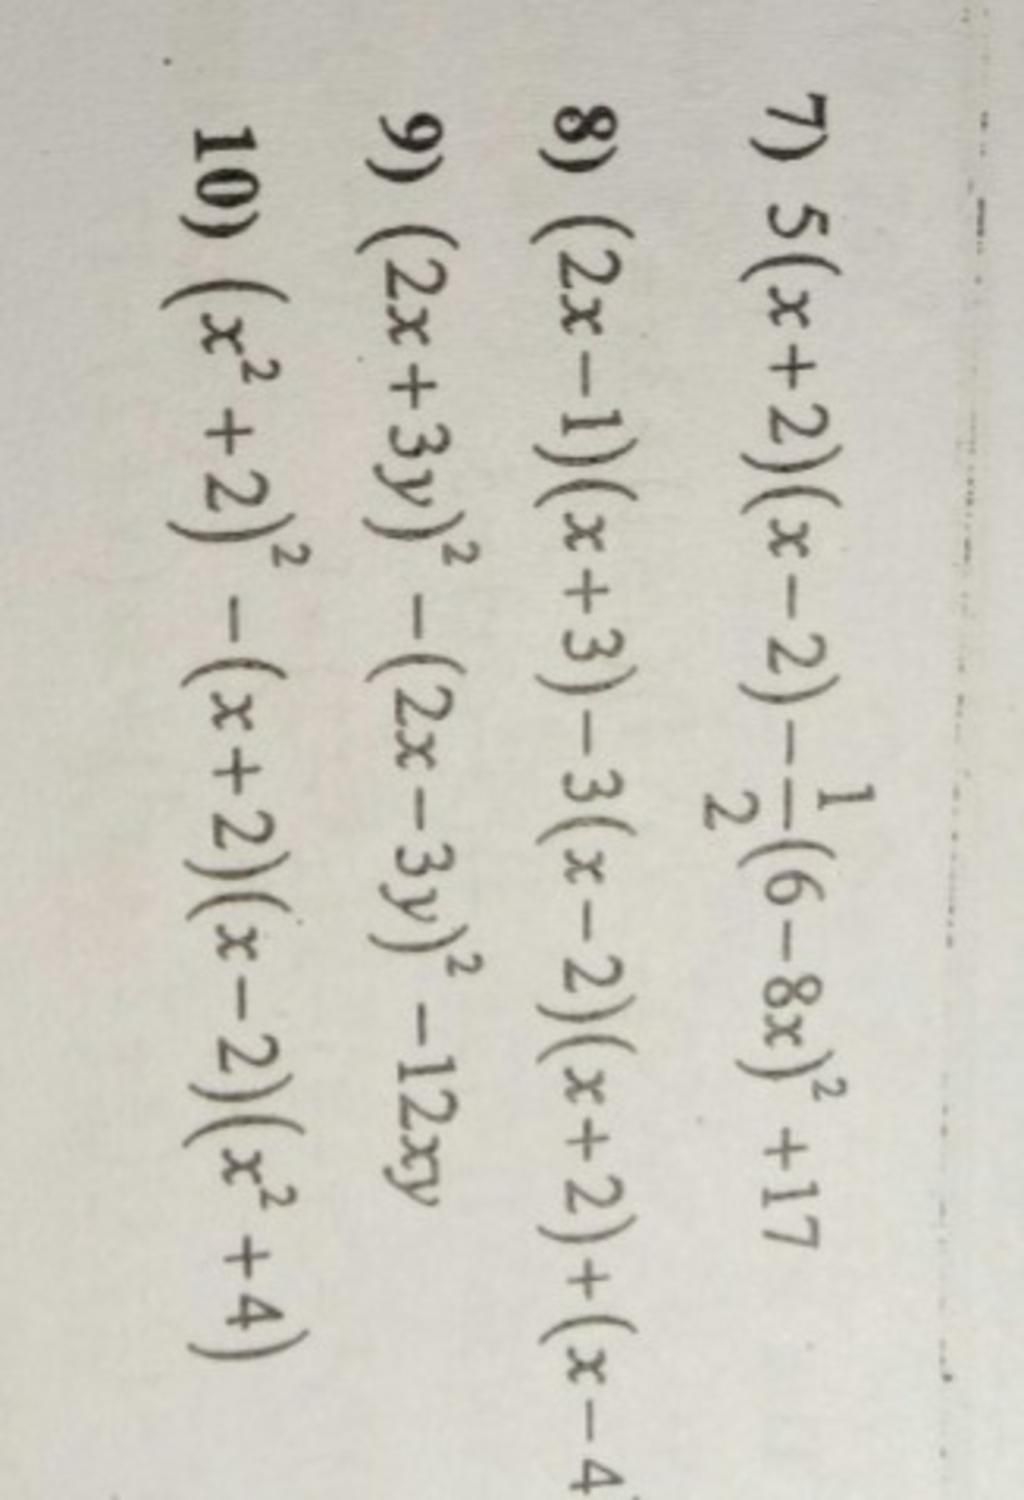 7) 5(x+2)(x−2)−\frac{1}{2}(6−8x)²+17
8) (2x−1)(x+3)−3(x−2)(x+2)+(x−4
9) (2x+3y)²−(2x−3y)²−12xy
10) (x²+2)²−(x+2)(x−2)(x²+4)